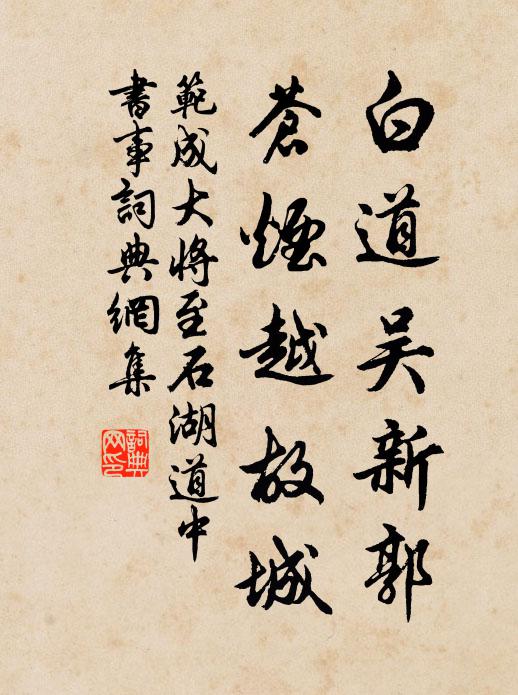 白道吴新郭
蒼煙越故城
範成大將至石湖道中
書事詞典網集
詞典
网印